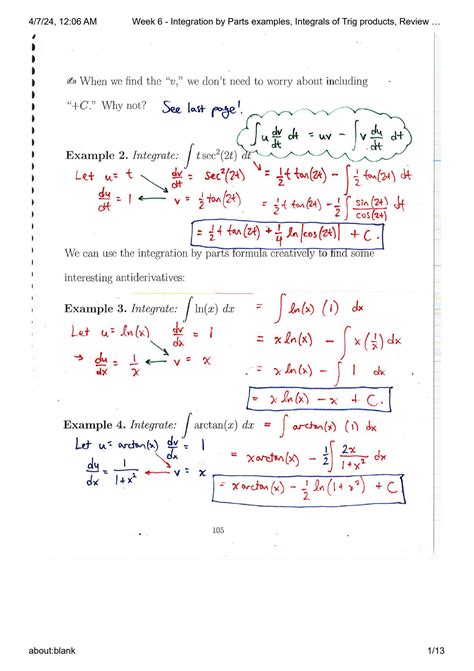 4/7/24, 12:06 AM Week 6 - Integration by Parts examples, Integrals of Trig products, Review …
✍ When we find the “v,” we don’t need to worry about including
“+C.” Why not? See last page!
∫ u dv/dt dt = uv − ∫ v du/dt dt
Example 2. Integrate: ∫ t sec²(2t) dt = ½ t tan(2t) − ∫ ½ tan(2t) dt
Let u = t dv/dt = sec²(2t)
du/dt = 1 ← v = ½ tan(2t) = ½ t tan(2t) − ½ ∫ sin(2t)/cos(2t) dt
= ½ t tan(2t) + ¼ ln|cos(2t)| + C.
We can use the integration by parts formula creatively to find some
interesting antiderivatives:
Example 3. Integrate: ∫ ln(x) dx = ∫ ln(x) (1) dx
Let u = ln(x) dv/dx = 1 = x ln(x) − ∫ x (1/x) dx
→ du/dx = 1/x ← v = x = x ln(x) − ∫ 1 dx
= x ln(x) − x + C.
Example 4. Integrate: ∫ arctan(x) dx = ∫ arctan(x) (1) dx
Let u = arctan(x) dv/dx = 1 = x arctan(x) − ½ ∫ 2x/1+x² dx
du/dx = 1/1+x² ← v = x
= x arctan(x) − ½ ln(1+x²) + C
105
about:blank 1/13